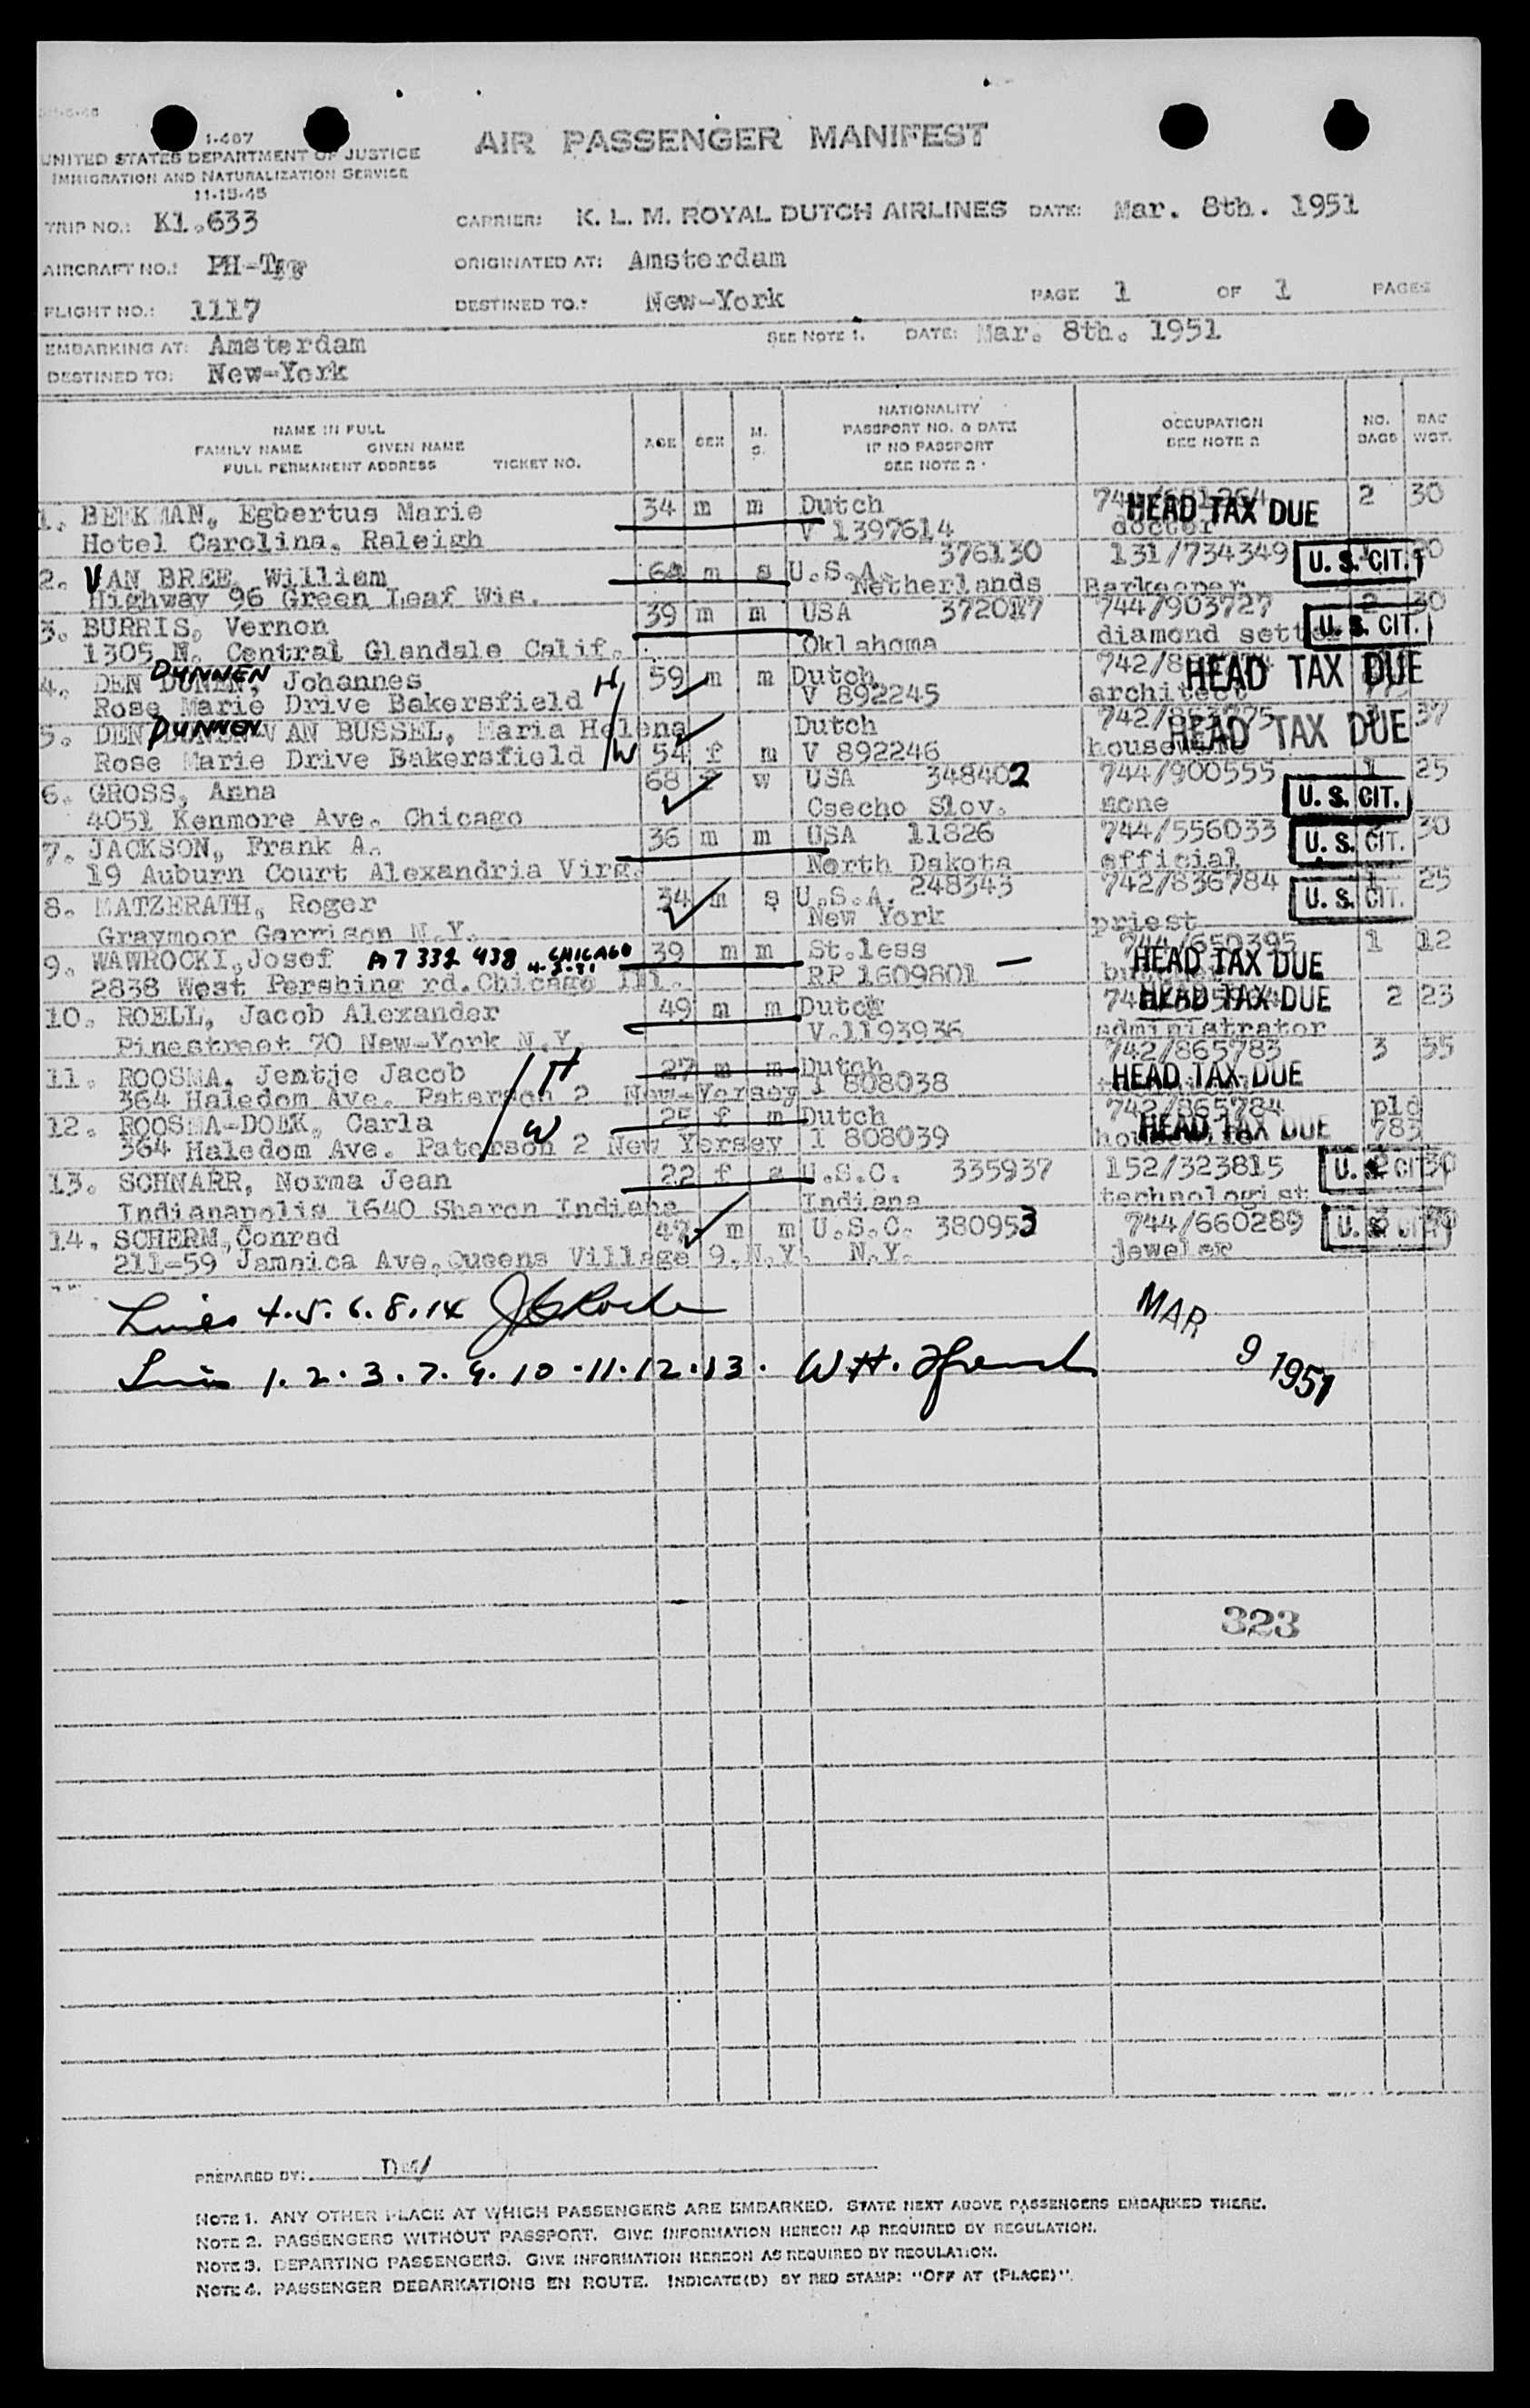 1-467
UNITED STATES DEPARTMENT OF JUSTICE
IMMIGRATION AND NATURALIZATION SERVICE
11-15-45
AIR PASSENGER MANIFEST
TRIP NO.: Kl.633
CARRIER: K. L. M. ROYAL DUTCH AIRLINES DATE: Mar. 8th. 1951
AIRCRAFT NO.: PH-
ORIGINATED AT: Amsterdam
FLIGHT NO.: 1117
DESTINED TO.: New-York
PAGE 1 OF 1 PAGES
EMBARKING AT: Amsterdam
SEE NOTE 1. DATE: Mar. 8th. 1951
DESTINED TO: New-York
NAME IN FULL
FAMILY NAME GIVEN NAME
FULL PERMANENT ADDRESS TICKET NO.
AGE SEX M. S.
NATIONALITY
PASSPORT NO. & DATE
IF NO PASSPORT
SEE NOTE 2.
OCCUPATION
SEE NOTE 2
NO. BAGS
BAG WGT.
1. BEEKMAN, Egbertus Marie 34 m m Dutch HEAD TAX DUE 2 30
Hotel Carolina, Raleigh V 1397614 doctor
2. VAN BREE, William 64 m s U.S.A. 376130 131/734349 U. S. CIT.
Highway 96 Green Leaf Wis. Netherlands Barkeeper
3. BURRIS, Vernon 39 m m USA 372017 744/903727 2 30
1305 N. Central Glendale Calif. Oklahoma diamond setter U. S. CIT.
4. DEN DUNNEN, Johannes H 59 m m Dutch HEAD TAX DUE
Rose Marie Drive Bakersfield V 892245 architect
5. DEN DUNNEN VAN BUSSEL, Maria Helena Dutch HEAD TAX DUE 37
Rose Marie Drive Bakersfield W 54 f m V 892246 housewife
6. GROSS, Anna 68 f w USA 348402 744/900555 1 25
4051 Kenmore Ave. Chicago Csecho Slov. none U. S. CIT.
7. JACKSON, Frank A. 36 m m USA 11826 744/556033 U. S. CIT. 30
19 Auburn Court Alexandria Virg. North Dakota official
8. MATZERATH, Roger 34 m s U.S.A. 248343 742/836784 1 25
Graymoor Garrison N.Y. New York priest U. S. CIT.
9. WAWROCKI, Josef A7 332 938 CHICAGO 39 m m St.less 744/650395 1 12
2838 West Pershing rd. Chicago Ill. RP 1609801 — HEAD TAX DUE
10. ROELL, Jacob Alexander 49 m m Dutch HEAD TAX DUE 2 23
Pinestreet 70 New-York N.Y. V.1193936 administrator
11. ROOSMA, Jentje Jacob H 27 m m Dutch 742/865783 3 55
364 Haledom Ave. Paterson 2 New-Yersey I 808038 HEAD TAX DUE
12. ROOSMA-DOEK, Carla W 25 f m Dutch 742/865784 pld 783
364 Haledom Ave. Paterson 2 New Yersey I 808039 housewife HEAD TAX DUE
13. SCHNARR, Norma Jean 22 f s U.S.C. 335937 152/323815 U. S. CIT. 30
Indianapolis 1640 Sharon Indiana Indiana technologist
14. SCHERM, Conrad 47 m m U.S.C. 380953 744/660289 U. S. CIT.
211-59 Jamaica Ave, Queens Village 9, N.Y. N.Y. jeweler
Lines 4. 5. 6. 8. 14
MAR 9 1951
Lines 1. 2. 3. 7. 9. 10. 11. 12. 13. W. H.
323
PREPARED BY:
NOTE 1. ANY OTHER PLACE AT WHICH PASSENGERS ARE EMBARKED. STATE NEXT ABOVE PASSENGERS EMBARKED THERE.
NOTE 2. PASSENGERS WITHOUT PASSPORT. GIVE INFORMATION HEREON AS REQUIRED BY REGULATION.
NOTE 3. DEPARTING PASSENGERS. GIVE INFORMATION HEREON AS REQUIRED BY REGULATION.
NOTE 4. PASSENGER DEBARKATIONS EN ROUTE. INDICATE(D) BY RED STAMP: "OFF AT (PLACE)".